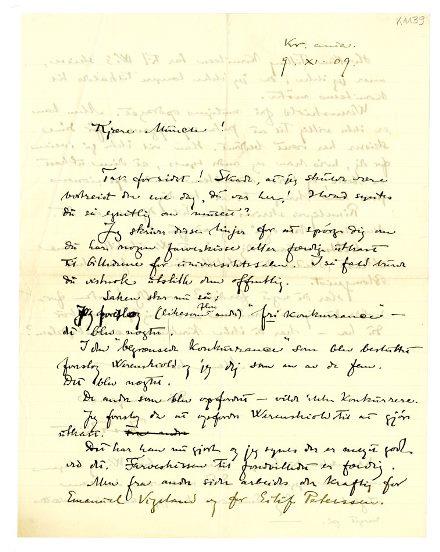 K 1139
Kr.ania.
9. XI. 09.
Kjære Munch!
Tak for sidst! Skade, at jeg skulde være
bortreist den ene dag, du var her! Hvad syntes
du så egentlig om museet?
Jeg skriver disse linjer for at spørge dig om
du har nogen farveskisse eller færdig utkast
til billederne for universitetssalen. I så fald burde
du utstille dem offentlig.
Saken står nu så:
Jeg foreslog (likesom flere andre) "fri Konkurrance" —
det blev nægtet.
I den "begrænsede Konkurrance" som blev besluttet
foreslog Werenskiold og jeg dig som en av de fem.
Det blev nægtet.
De andre som blev opfordret — vilde ikke konkurrere.
Jeg foreslog da at opfordre Werenskiold til at gjøre
utkast.
Det har han nu gjort og jeg synes der er meget godt
ved det. Farveskissen til fondbilledet er færdig.
Men fra anden side arbeides der kraftig for
Emanuel Vigeland og for Eilif Peterssen.